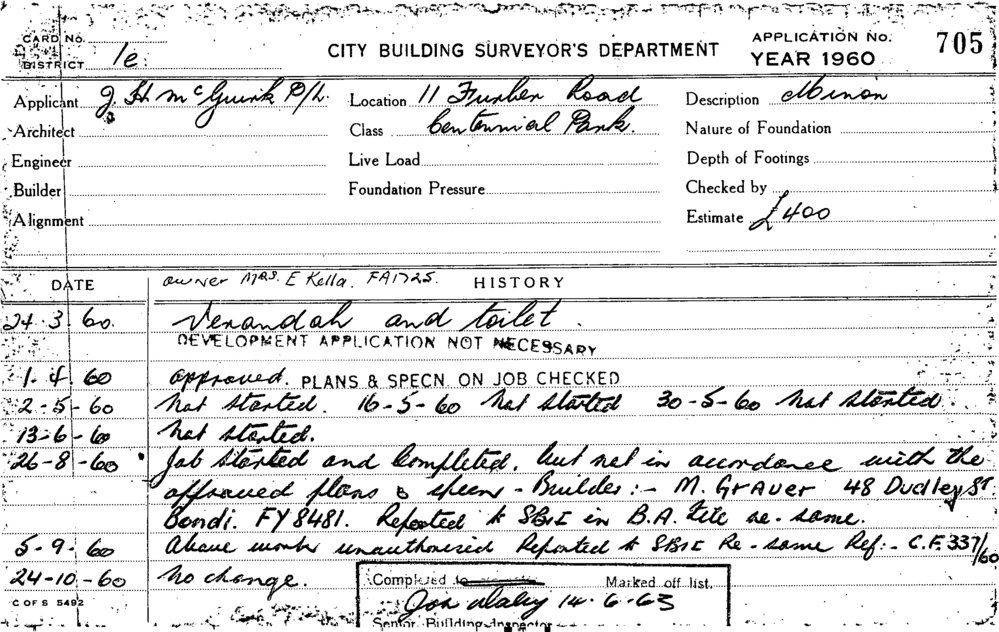 CARD No.
CITY BUILDING SURVEYOR'S DEPARTMENT
APPLICATION No. 705
YEAR 1960
DISTRICT 1e
Applicant J. H. McGuirk P/L. Location 11 Furber Road Description Minor
Architect Class Centennial Park. Nature of Foundation
Engineer Live Load Depth of Footings
Builder Foundation Pressure Checked by
Alignment Estimate £400
DATE owner Mrs. E Kella. FA1725. HISTORY
24.3.60. Verandah and toilet.
DEVELOPMENT APPLICATION NOT NECESSARY
1.4.60 approved. PLANS & SPECN. ON JOB CHECKED
2-5-60 Not started. 16-5-60 Not started 30-5-60 Not started
13-6-60 Not started.
26-8-60 Job started and completed, but not in accordance with the
approved plans & specns - Builder:- M. Graver 48 Dudley St
Bondi. FY 8481. Reported to SBI in B.A. file re-same.
5-9-60 Above works unauthorised Reported to SBI Re-same Ref:- C.F. 337/60
24-10-60 No change.
Completed Marked off list.
14-6-63
Senior Building Inspector
C OF S 5492